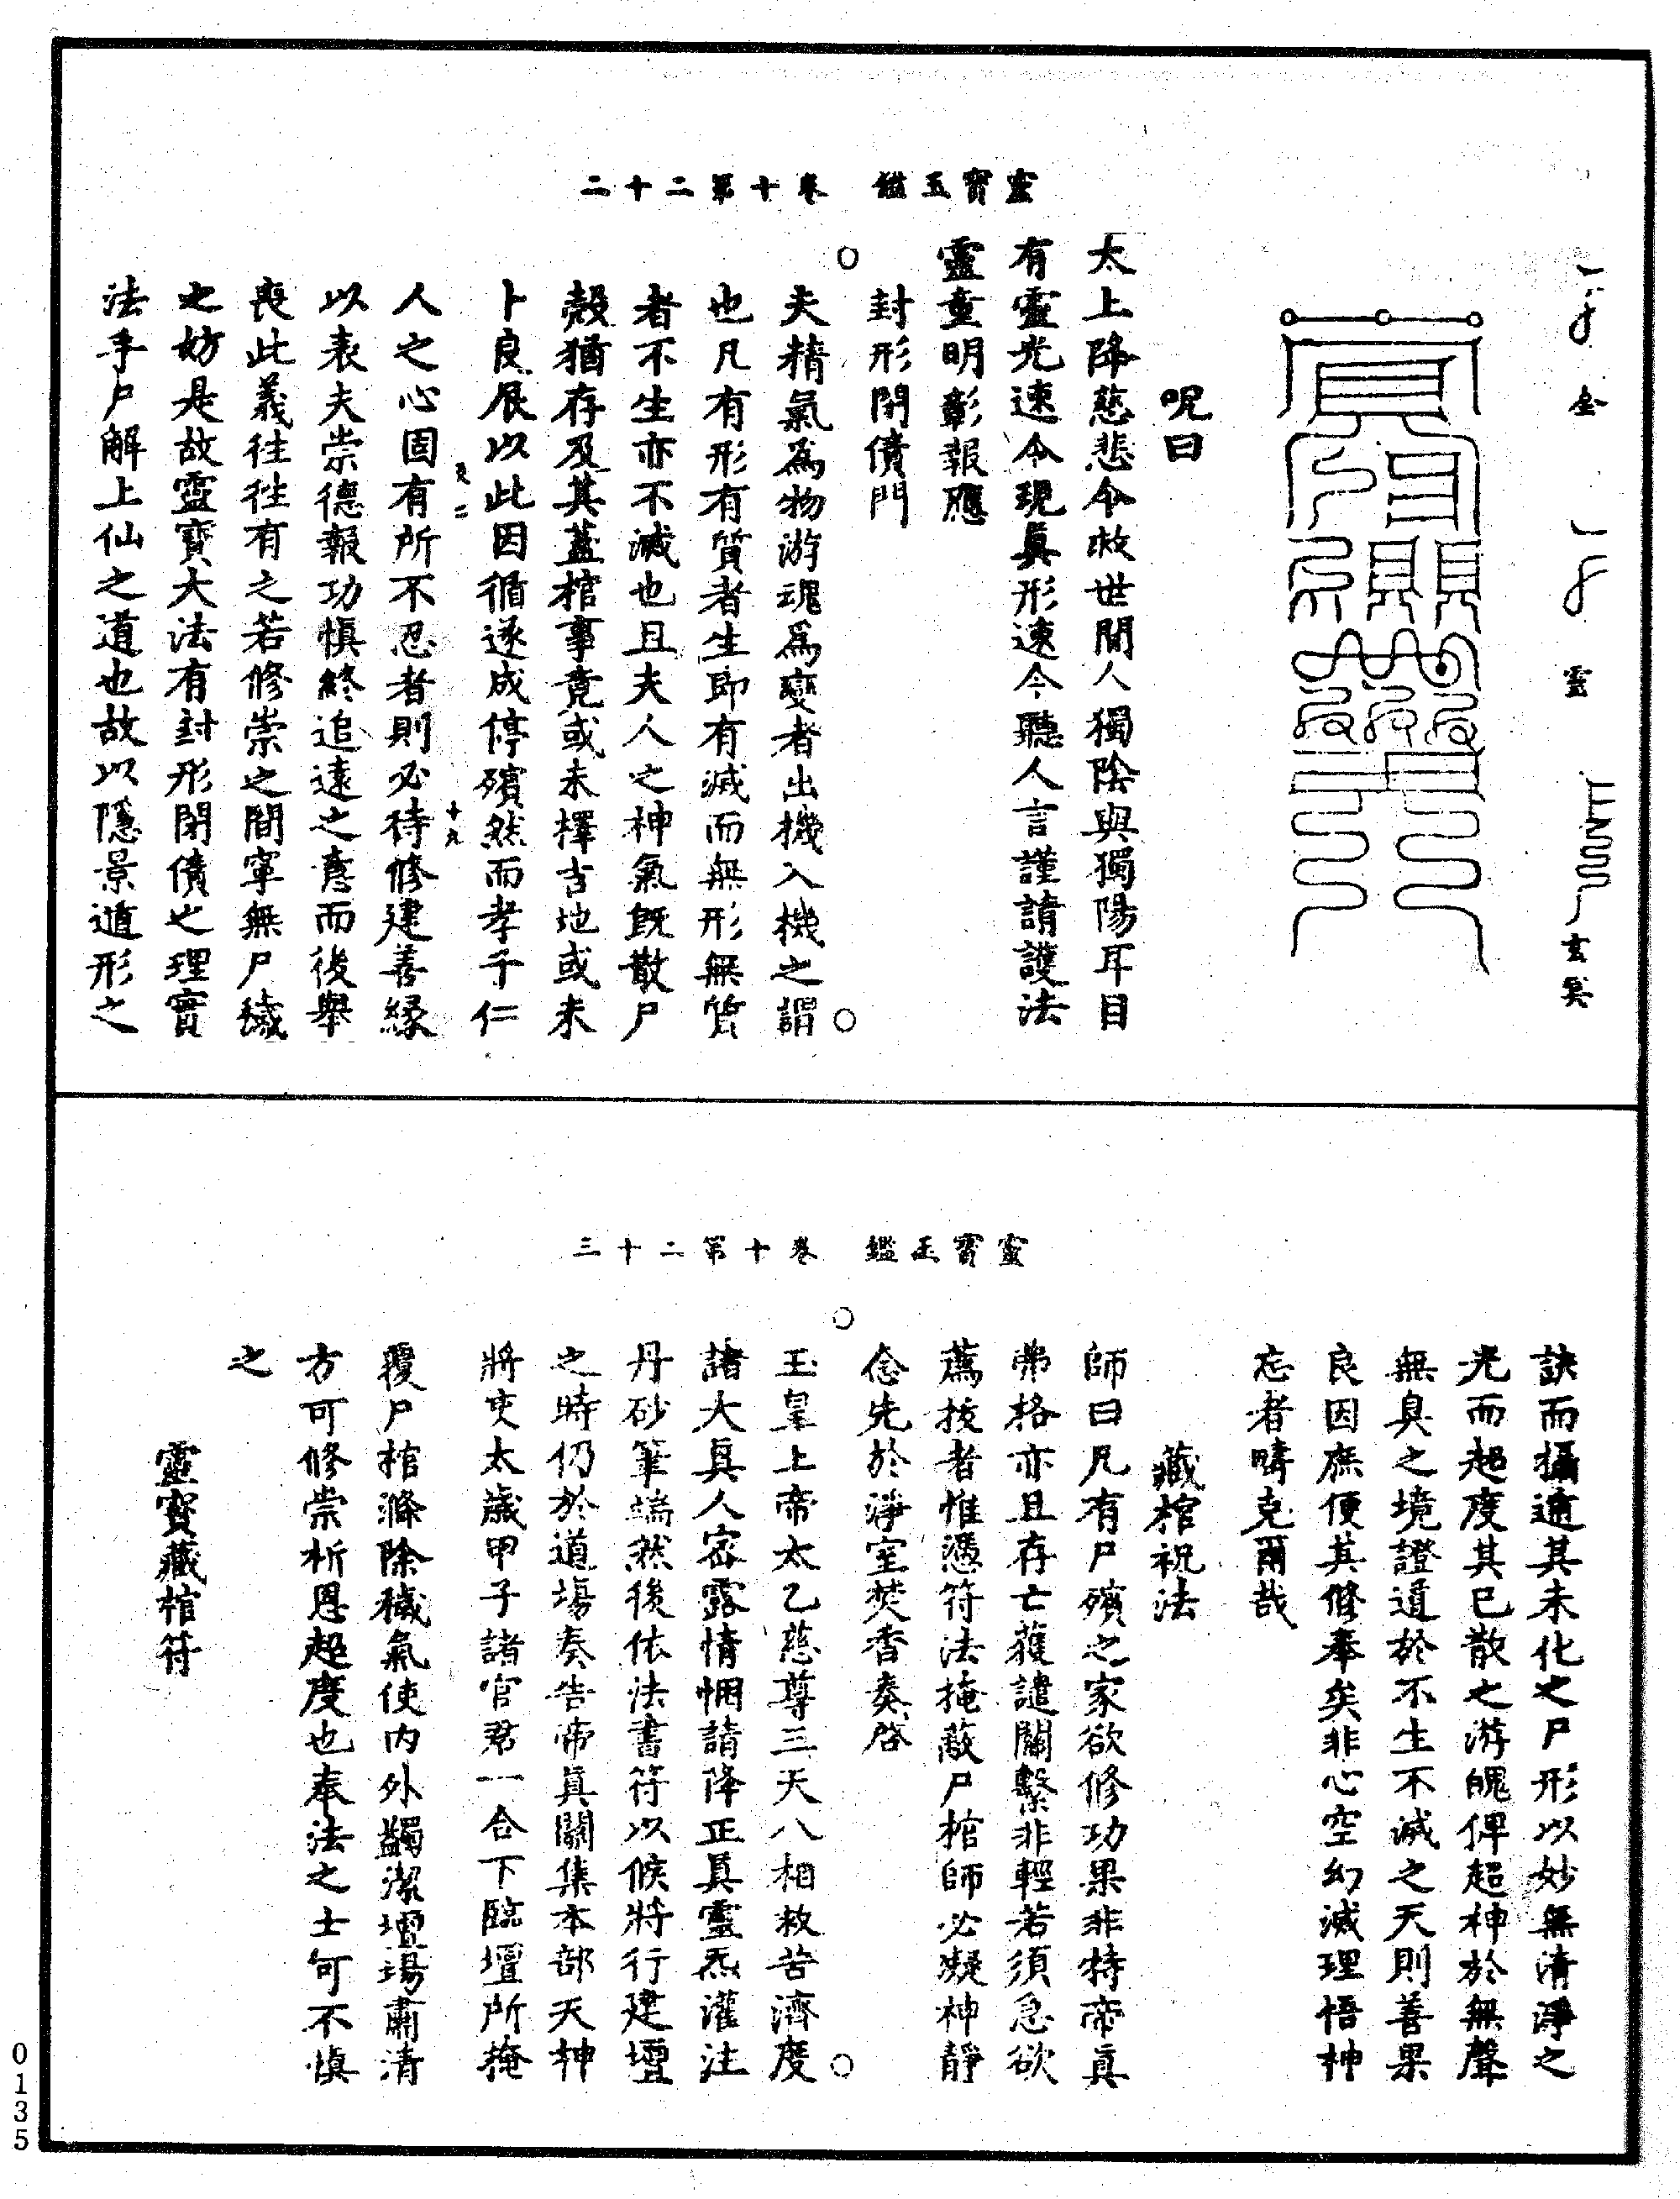 靈寶玉鑑　卷十第二十二
金
靈
玄
呪曰
太上降慈悲令救世間人獨陰與獨陽耳目
有靈光速令現眞形速令聽人言謹請護法
靈童明彰報應
封形閉儥門
夫精氣爲物游魂爲變者出機入機之謂
也凡有形有質者生即有滅而無形無質
者不生亦不滅也且夫人之神氣旣散尸
殼猶存及其蓋棺事竟或未擇吉地或未
卜良辰以此因循遂成停殯然而孝子仁
人之心固有所不忍者則必待修建善緣
以表夫崇德報功愼終追遠之意而後舉
喪此義往往有之若修崇之間寧無尸穢
之妨是故靈寶大法有封形閉儥之理實
法乎尸解上仙之道也故以隱景遁形之
十九
靈寶玉鑑　卷十第二十三
訣而攝遁其未化之尸形以妙無清淨之
光而超度其已散之游魄俾超神於無聲
無臭之境證道於不生不滅之天則善果
良因庶便其修奉矣非心空幻滅理悟神
忘者疇克爾哉
藏棺祝法
師曰凡有尸殯之家欲修功果非特帝眞
弗格亦且存亡獲譴關繫非輕若須急欲
薦拔者惟憑符法掩蔽尸棺師必凝神靜
念先於淨室焚香奏啓
玉皇上帝太乙慈尊三天八相救苦濟度
諸大眞人密露情悃請降正眞靈炁灌注
丹砂筆端然後依法書符以候將行建壇
之時仍於道場奏告帝眞關集本部天神
將吏太歲甲子諸官君一合下臨壇所掩
覆尸棺滌除穢氣使內外蠲潔壇場肅清
方可修崇析恩超度也奉法之士可不愼
之
靈寶藏棺符
0135